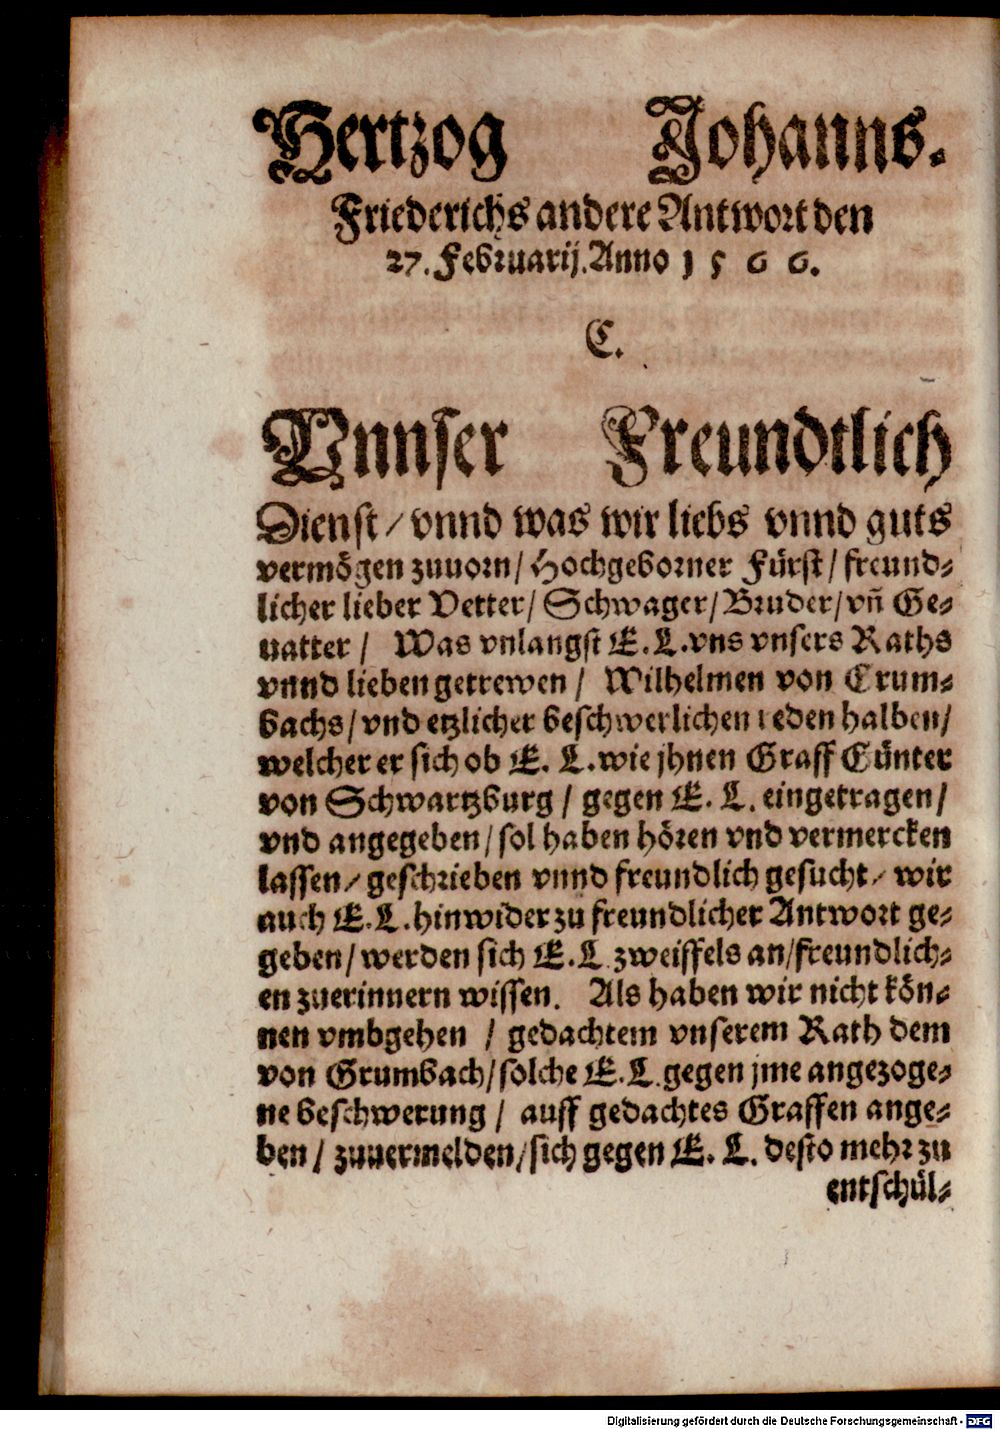 Hertzog Johanns.
Friederichs andere Antwort den
27. Februarij. Anno 1566.
C.
Vnnser Freundtlich
Dienst / vnnd was wir liebs vnnd guts
vermögen zuuorn / Hochgeborner Fürst / freund⸗
licher lieber Vetter / Schwager / Bruder / vñ Ge⸗
uatter / Was vnlangst E. L. vns vnsers Raths
vnnd lieben getrewen / Wilhelmen von Crum⸗
bachs / vnd etzlicher beschwerlichen reden halben /
welcher er sich ob E. L. wie jhnen Graff Günter
von Schwartzburg / gegen E. L. eingetragen /
vnd angegeben / sol haben hören vnd vermercken
lassen / geschrieben vnnd freundlich gesucht / wir
auch E. L. hinwider zu freundlicher Antwort ge⸗
geben / werden sich E. L zweiffels an / freundlich⸗
en zuerinnern wissen. Als haben wir nicht kön⸗
nen vmbgehen / gedachtem vnserem Rath dem
von Grumbach / solche E. L. gegen jme angezoge⸗
ne beschwerung / auff gedachtes Graffen ange⸗
ben / zuuermelden / sich gegen E. L. desto mehr zu
entschül⸗
Digitalisierung gefördert durch die Deutsche Forschungsgemeinschaft - DFG